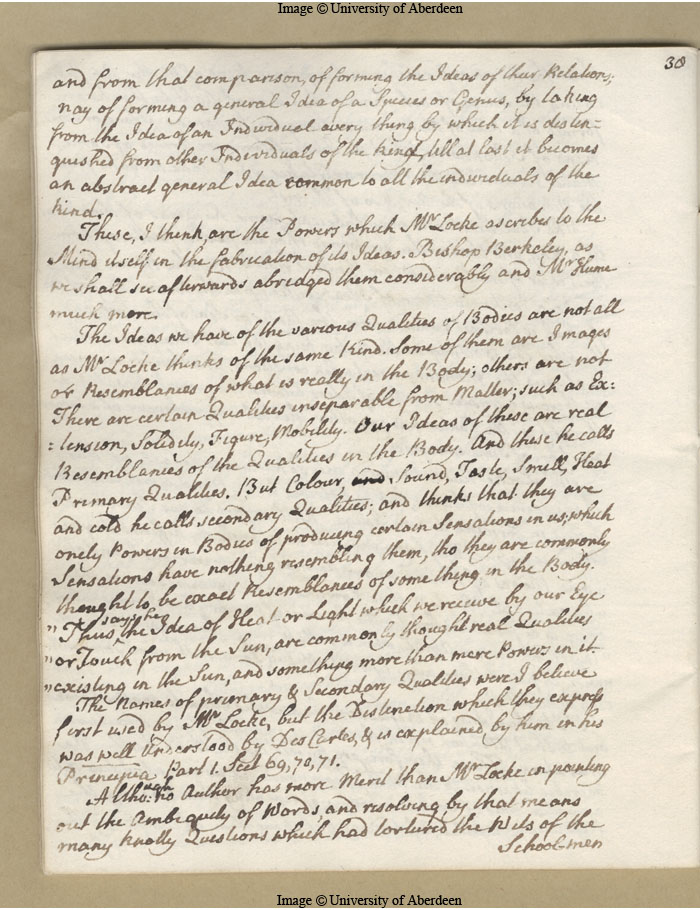 Image © University of Aberdeen
30
and from that comparison, of forming the Ideas of their Relations;
nay of forming a general Idea of a Species or Genus, by taking
from the Idea of an Individual every thing by which it is distin=
quished from other Individuals of the kind, till at last it becomes
an abstract general Idea common to all the individuals of the
kind.
These, I think, are the Powers which Mr Locke ascribes to the
Mind itself in the fabrication of its Ideas. Bishop Berkeley, as
we shall see afterwards abridged them considerably and Mr Hume
much more.
The Ideas we have of the various Qualities of Bodies are not all
as Mr Locke thinks of the same kind. Some of them are Images
or Resemblances of what is really in the Body; others are not
There are certain Qualities inseparable from Matter; such as Ex:
:tension, Solidity, Figure, Mobility. Our Ideas of these are real
Resemblances of the Qualities in the Body. And these he calls
Primary Qualities. But Colour, and Sound, Taste, Smell, Heat
and cold he calls secondary Qualities; and thinks that they are
onely Powers in Bodies of producing certain Sensations in us; which
Sensations have nothing resembling them, tho they are commonly
thought to be exact Resemblances of some thing in the Body.
" Thus, says he, the Idea of Heat or Light which we receive by our Eye
" or Touch from the Sun, are commonly thought real Qualities
" existing in the Sun, and something more than mere Powers in it.
The Names of primary & Secondary Qualities were I believe
first used by Mr Locke, but the Distinction which they express
was well understood by Des Cartes, & is explained by him in his
Principia Part 1. Sect 69, 70, 71.
Although no Author has more Merit than Mr Locke in pointing
out the Ambiguity of Words, and resolving by that means
many knotty Questions which had tortured the Wits of the
Schoolmen
Image © University of Aberdeen